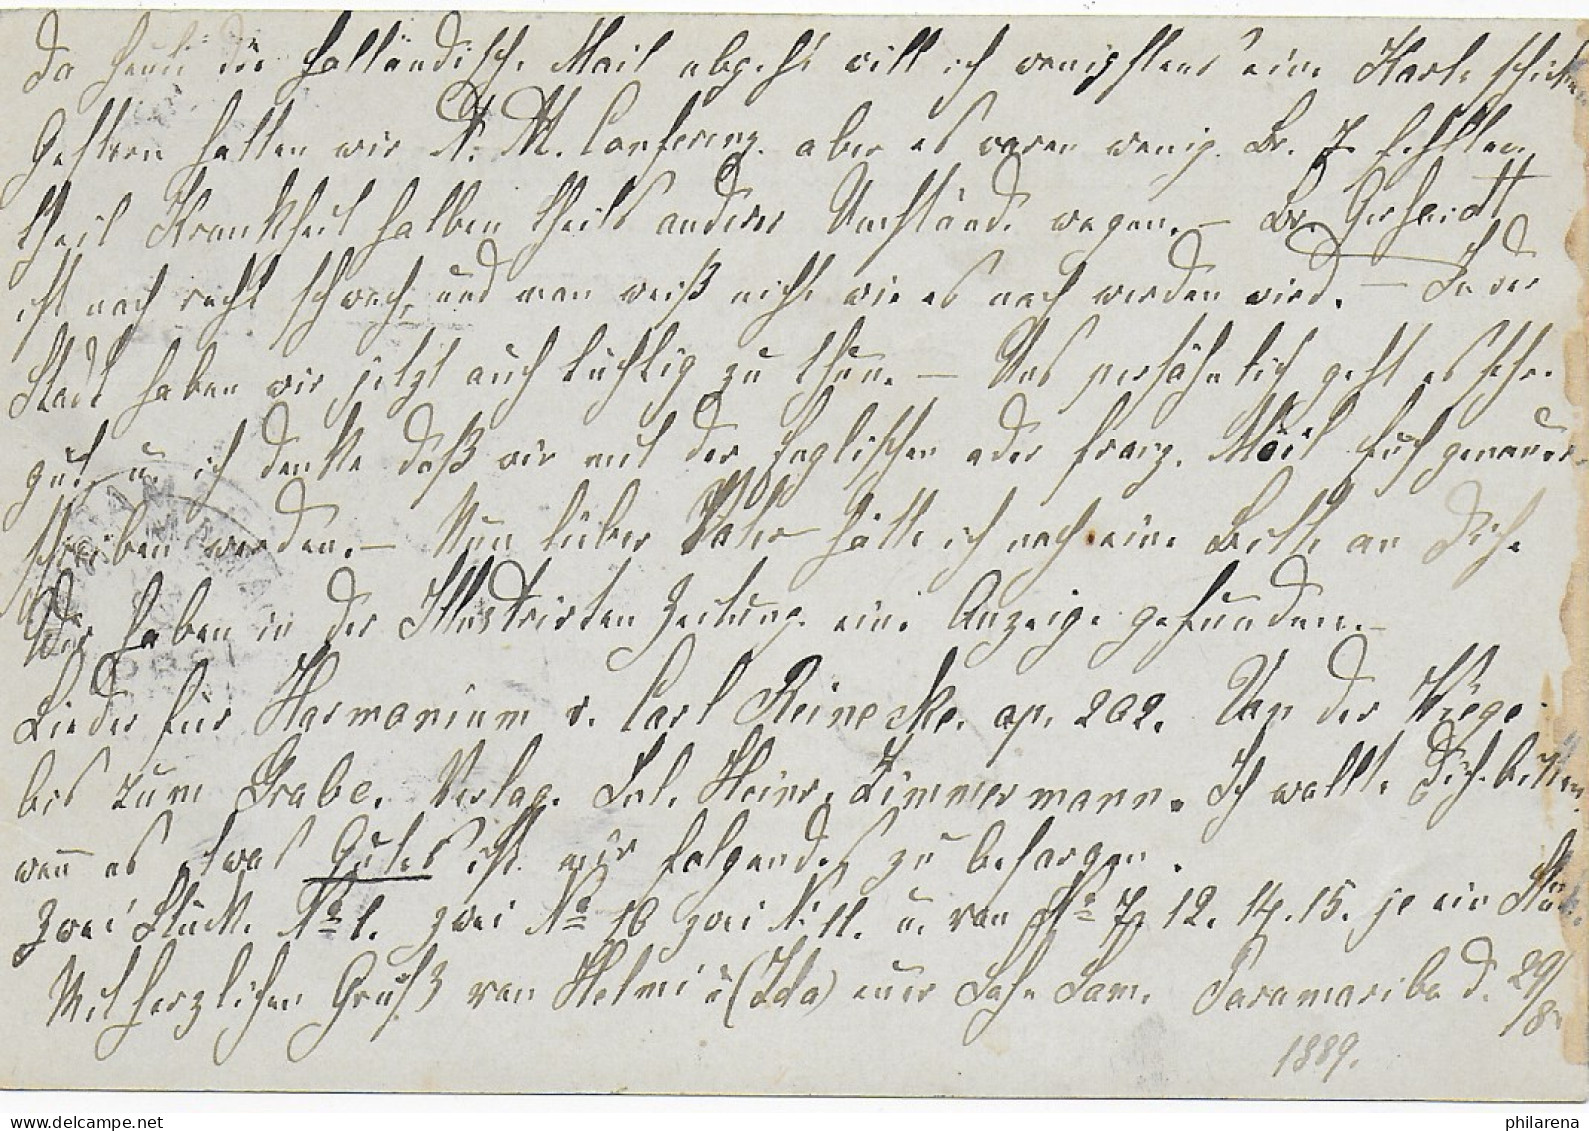 Da heute die holländische Mail abgeht will ich wenigstens eine Karte schicken
Gestern hatten wir N. M. Conferenz. aber es waren wenig. Br. 7 fehlten
theil Krankheit halben theils anderer Umstände wegen. – Br. Gerhardt
ist noch recht schwach, und man weiß nicht wie es noch werden wird. – In der
Stadt haben wir jetzt auch tüchtig zu thun. – Uns persöhnlich geht es sehr
gut, u. ich denke daß wir mit der Englischen oder franz. Mail Euch genauer
schreiben werden. – Nun lieber Vater hätte ich noch eine Bitte an Dich.
Wir haben in der Illustrirten Zeitung. eine Anzeige gefunden. –
Lieder für Harmonium v. Carl Reinecke. op. 202. Von der Wiege
bis zum Grabe. Verlag. Jul. Heinr. Zimmermann. Ich wollte Dich bitten
wenn es etwas Gutes ist mir folgendes zu besorgen.
Zwei Stück. No 1. zwei No 10 zwei N. 11. u. von No 7, 12. 14. 15. je ein Stück.
Mit herzlichen Gruß von Helmi u (Ida) euer Sohn Sam. Paramaribo d. 29/8
1889.
philarena.com